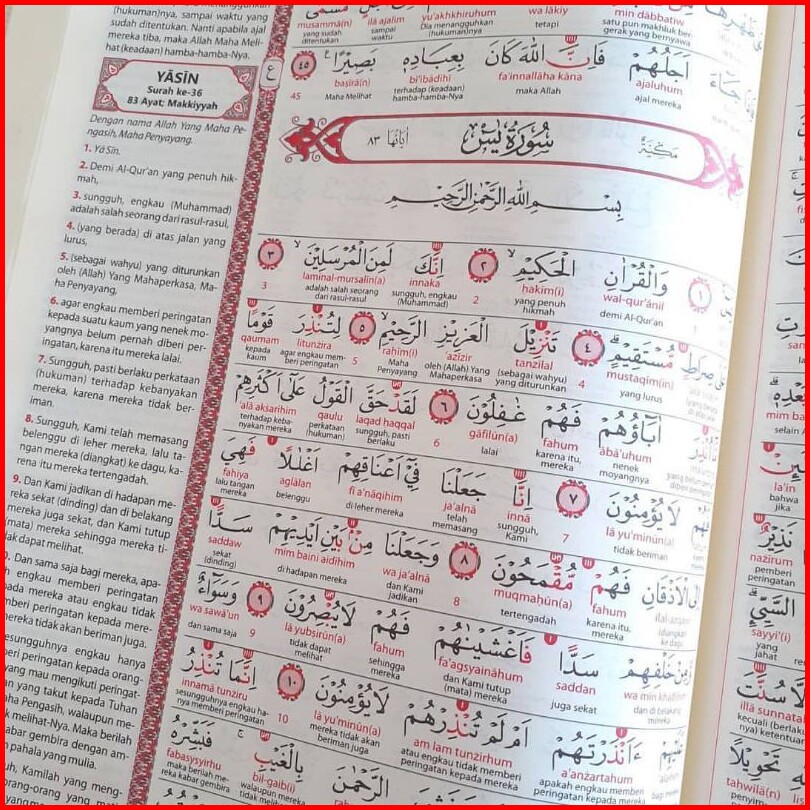 (hukuman)nya, sampai waktu yang
sudah ditentukan. Nanti apabila ajal
mereka tiba, maka Allah Maha Meli-
hat (keadaan) hamba-hamba-Nya.
YĀSĪN
Surah ke-36
83 Ayat; Makkiyyah
Dengan nama Allah Yang Maha Pe-
ngasih, Maha Penyayang.
1. Yā Sīn.
2. Demi Al-Qur'an yang penuh hik-
mah,
3. sungguh, engkau (Muhammad)
adalah salah seorang dari rasul-rasul,
4. (yang berada) di atas jalan yang
lurus,
5. (sebagai wahyu) yang diturunkan
oleh (Allah) Yang Mahaperkasa, Ma-
ha Penyayang,
6. agar engkau memberi peringatan
kepada suatu kaum yang nenek mo-
yangnya belum pernah diberi per-
ingatan, karena itu mereka lalai.
7. Sungguh, pasti berlaku perkataan
(hukuman) terhadap kebanyakan
mereka, karena mereka tidak ber-
iman.
8. Sungguh, Kami telah memasang
belenggu di leher mereka, lalu ta-
ngan mereka (diangkat) ke dagu, ka-
rena itu mereka tertengadah.
9. Dan Kami jadikan di hadapan me-
reka sekat (dinding) dan di belakang
mereka juga sekat, dan Kami tutup
(mata) mereka sehingga mereka ti-
dak dapat melihat.
. Dan sama saja bagi mereka, apa-
h engkau memberi peringatan
pada mereka atau engkau tidak
mberi peringatan kepada mere-
mereka tidak akan beriman juga.
esungguhnya engkau hanya
beri peringatan kepada orang-
yang mau mengikuti peringat-
an yang takut kepada Tuhan
Maha Pengasih, walaupun me-
k melihat-Nya. Maka berilah
abar gembira dengan am-
pahala yang mulia.
uh, Kamilah yang meng-
orang-orang yang mati
musammá(n) ilá ajalim yu'akhkhiruhum wa lākiy min dābbatiw
yang sudah ditentukan sampai waktu Dia menangguhkan (hukuman)nya tetapi satu pun makhluk ber-gerak yang bernyawa
اَجَلُهُمْ فَاِنَّ اللّٰهَ كَانَ بِعِبَادِهٖ بَصِيْرًا ٤٥
ajaluhum fa'innallāha kāna bi'ibādihī baṣīrā(n)
ajal mereka maka Allah terhadap (keadaan) hamba-hamba-Nya Maha Melihat 45
مَكِّيَّةٌ سُوْرَةُ يٰسۤ اٰيَاتُهَا ٨٣
بِسْمِ اللّٰهِ الرَّحْمٰنِ الرَّحِيْمِ
١ وَالْقُرْاٰنِ الْحَكِيْمِ ٢ اِنَّكَ لَمِنَ الْمُرْسَلِيْنَ ٣
wal-qur'ānil ḥakīm(i) innaka laminal-mursalīn(a)
demi Al-Qur'an yang penuh hikmah 2 sungguh, engkau (Muhammad) adalah salah seorang dari rasul-rasul 3
صِرَاطٍ مُّسْتَقِيْمٍ ٤ تَنْزِيْلَ الْعَزِيْزِ الرَّحِيْمِ ٥ لِتُنْذِرَ قَوْمًا
mustaqīm(in) tanzīlal 'azīzir raḥīm(i) litunżira qaumam
yang lurus 4 (sebagai wahyu) yang diturunkan oleh (Allah) Yang Mahaperkasa Maha Penyayang 5 agar engkau mem-beri peringatan kepada kaum
اٰبَاۤؤُهُمْ فَهُمْ غٰفِلُوْنَ ٦ لَقَدْ حَقَّ الْقَوْلُ عَلٰٓى اَكْثَرِهِمْ
ābā'uhum fahum gāfilūn(a) laqad ḥaqqal qaulu 'alā akṡarihim
nenek moyangnya karena itu, mereka lalai 6 sungguh, pasti berlaku perkataan (hukuman) terhadap keba-nyakan mereka
لَا يُؤْمِنُوْنَ ٧ اِنَّا جَعَلْنَا فِيْٓ اَعْنَاقِهِمْ اَغْلٰلًا فَهِيَ
lā yu'minūn(a) innā ja'alnā fī a'nāqihim aglālan fahiya
tidak beriman 7 sungguh, Kami telah memasang di leher mereka belenggu lalu tangan mereka
اِلَى الْاَذْقَانِ فَهُمْ مُّقْمَحُوْنَ ٨ وَجَعَلْنَا مِنْۢ بَيْنِ اَيْدِيْهِمْ سَدًّا
fahum muqmaḥūn(a) wa ja'alnā mim baini aidīhim saddaw
karena itu, mereka tertengadah 8 dan Kami jadikan di hadapan mereka sekat (dinding)
خَلْفِهِمْ سَدًّا فَاَغْشَيْنٰهُمْ فَهُمْ لَا يُبْصِرُوْنَ ٩ وَسَوَاۤءٌ
wa min khalfihim saddan fa'agsyaināhum fahum lā yubṣirūn(a) wa sawā'un
dan di belakang mereka juga sekat dan Kami tutup (mata) mereka sehingga mereka tidak dapat melihat 9 dan sama saja
ءَاَنْذَرْتَهُمْ اَمْ لَمْ تُنْذِرْهُمْ لَا يُؤْمِنُوْنَ ١٠ اِنَّمَا تُنْذِرُ
a'anżartahum am lam tunżirhum lā yu'minūn(a) innamā tunżiru
apakah engkau memberi peringatan kepada mereka atau engkau tidak memberi peringatan kepada mereka mereka tidak akan beriman juga 10 sesungguhnya engkau ha-nya memberi peringatan
الرَّحْمٰنَ بِالْغَيْبِ فَبَشِّرْهُ
bil-gaib(i) fabasysyirhu
walaupun mereka tidak melihat-Nya maka berilah me-reka kabar gembira